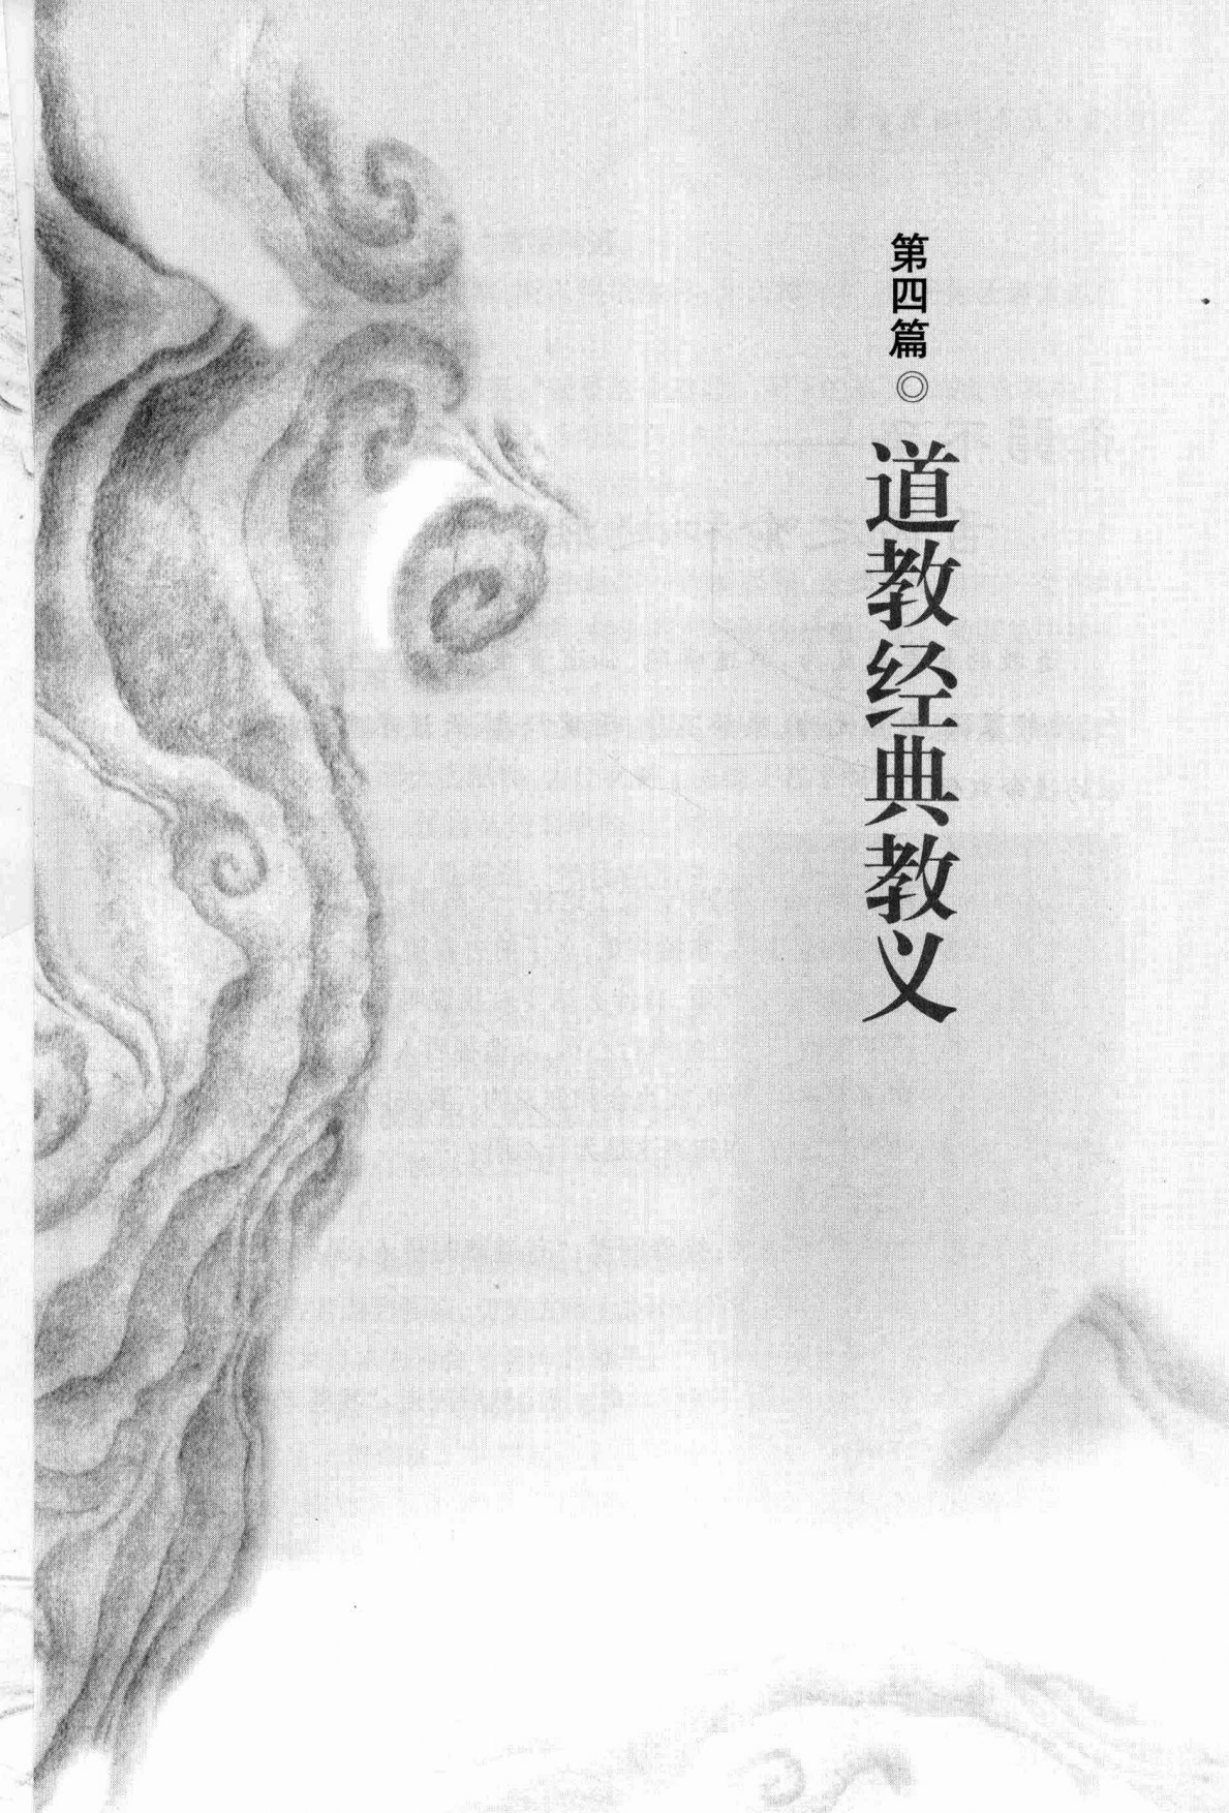 第四篇◎道教经典教义